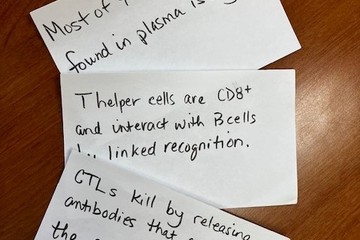 Most of
found in plasma is
T helper cells are CD8+
and interact with B cells
linked recognition.
CTLs kill by releasing
antibodies that
the